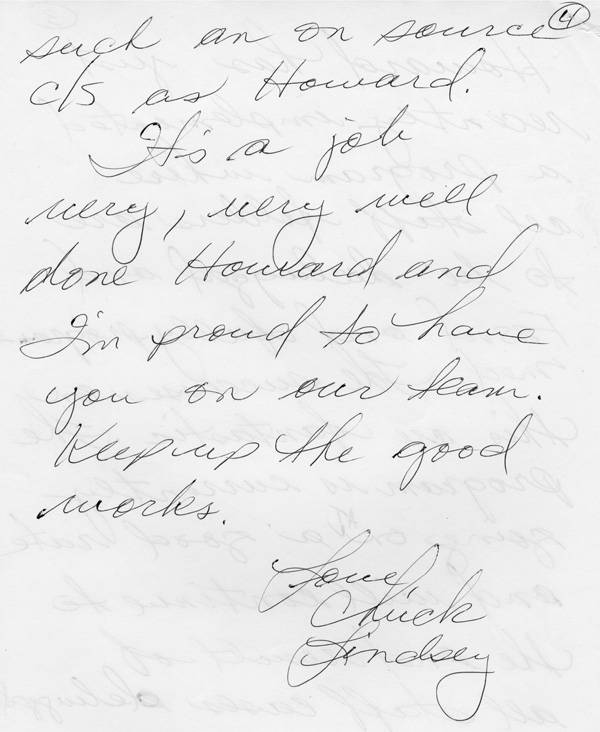 4
such an on source
c/s as Howard.
It's a job
very, very well
done Howard and
I'm proud to have
you on our team.
Keep up the good
works.
Love,
Chuck
Lindsey